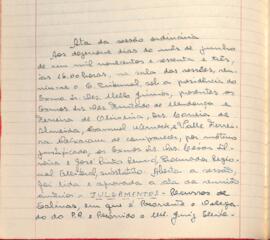 Ata da sessão ordinária
Aos dezenove dias do mês de junho
de um mil novecentos e sessenta e três,
às 16.00 horas, na sala das sessões, reu-
niu-se o E. Tribunal, sob a presidência do
Exmo. Sr. Des. Mello Júnior, presentes os
Exmos. Srs. Des. Furtado de Mendonça e
Ferreira de Oliveira, Drs. Corrêia de
Almeida, e Valle Ferrei-
ra. Deixaram de comparecer, por motivo
justificado, os Exmos. Srs. Drs. Cesar Sil-
veira e José Pinto Procurador Regio-
nal Eleitoral, substituto. Aberta a sessão,
foi lida e aprovada a ata da reunião
anterior. - JULGAMENTOS - Recursos de
Salinas, em que é Recorrente o Delega-
do do P.R. e Recorrido o MM. Juiz Eleito-